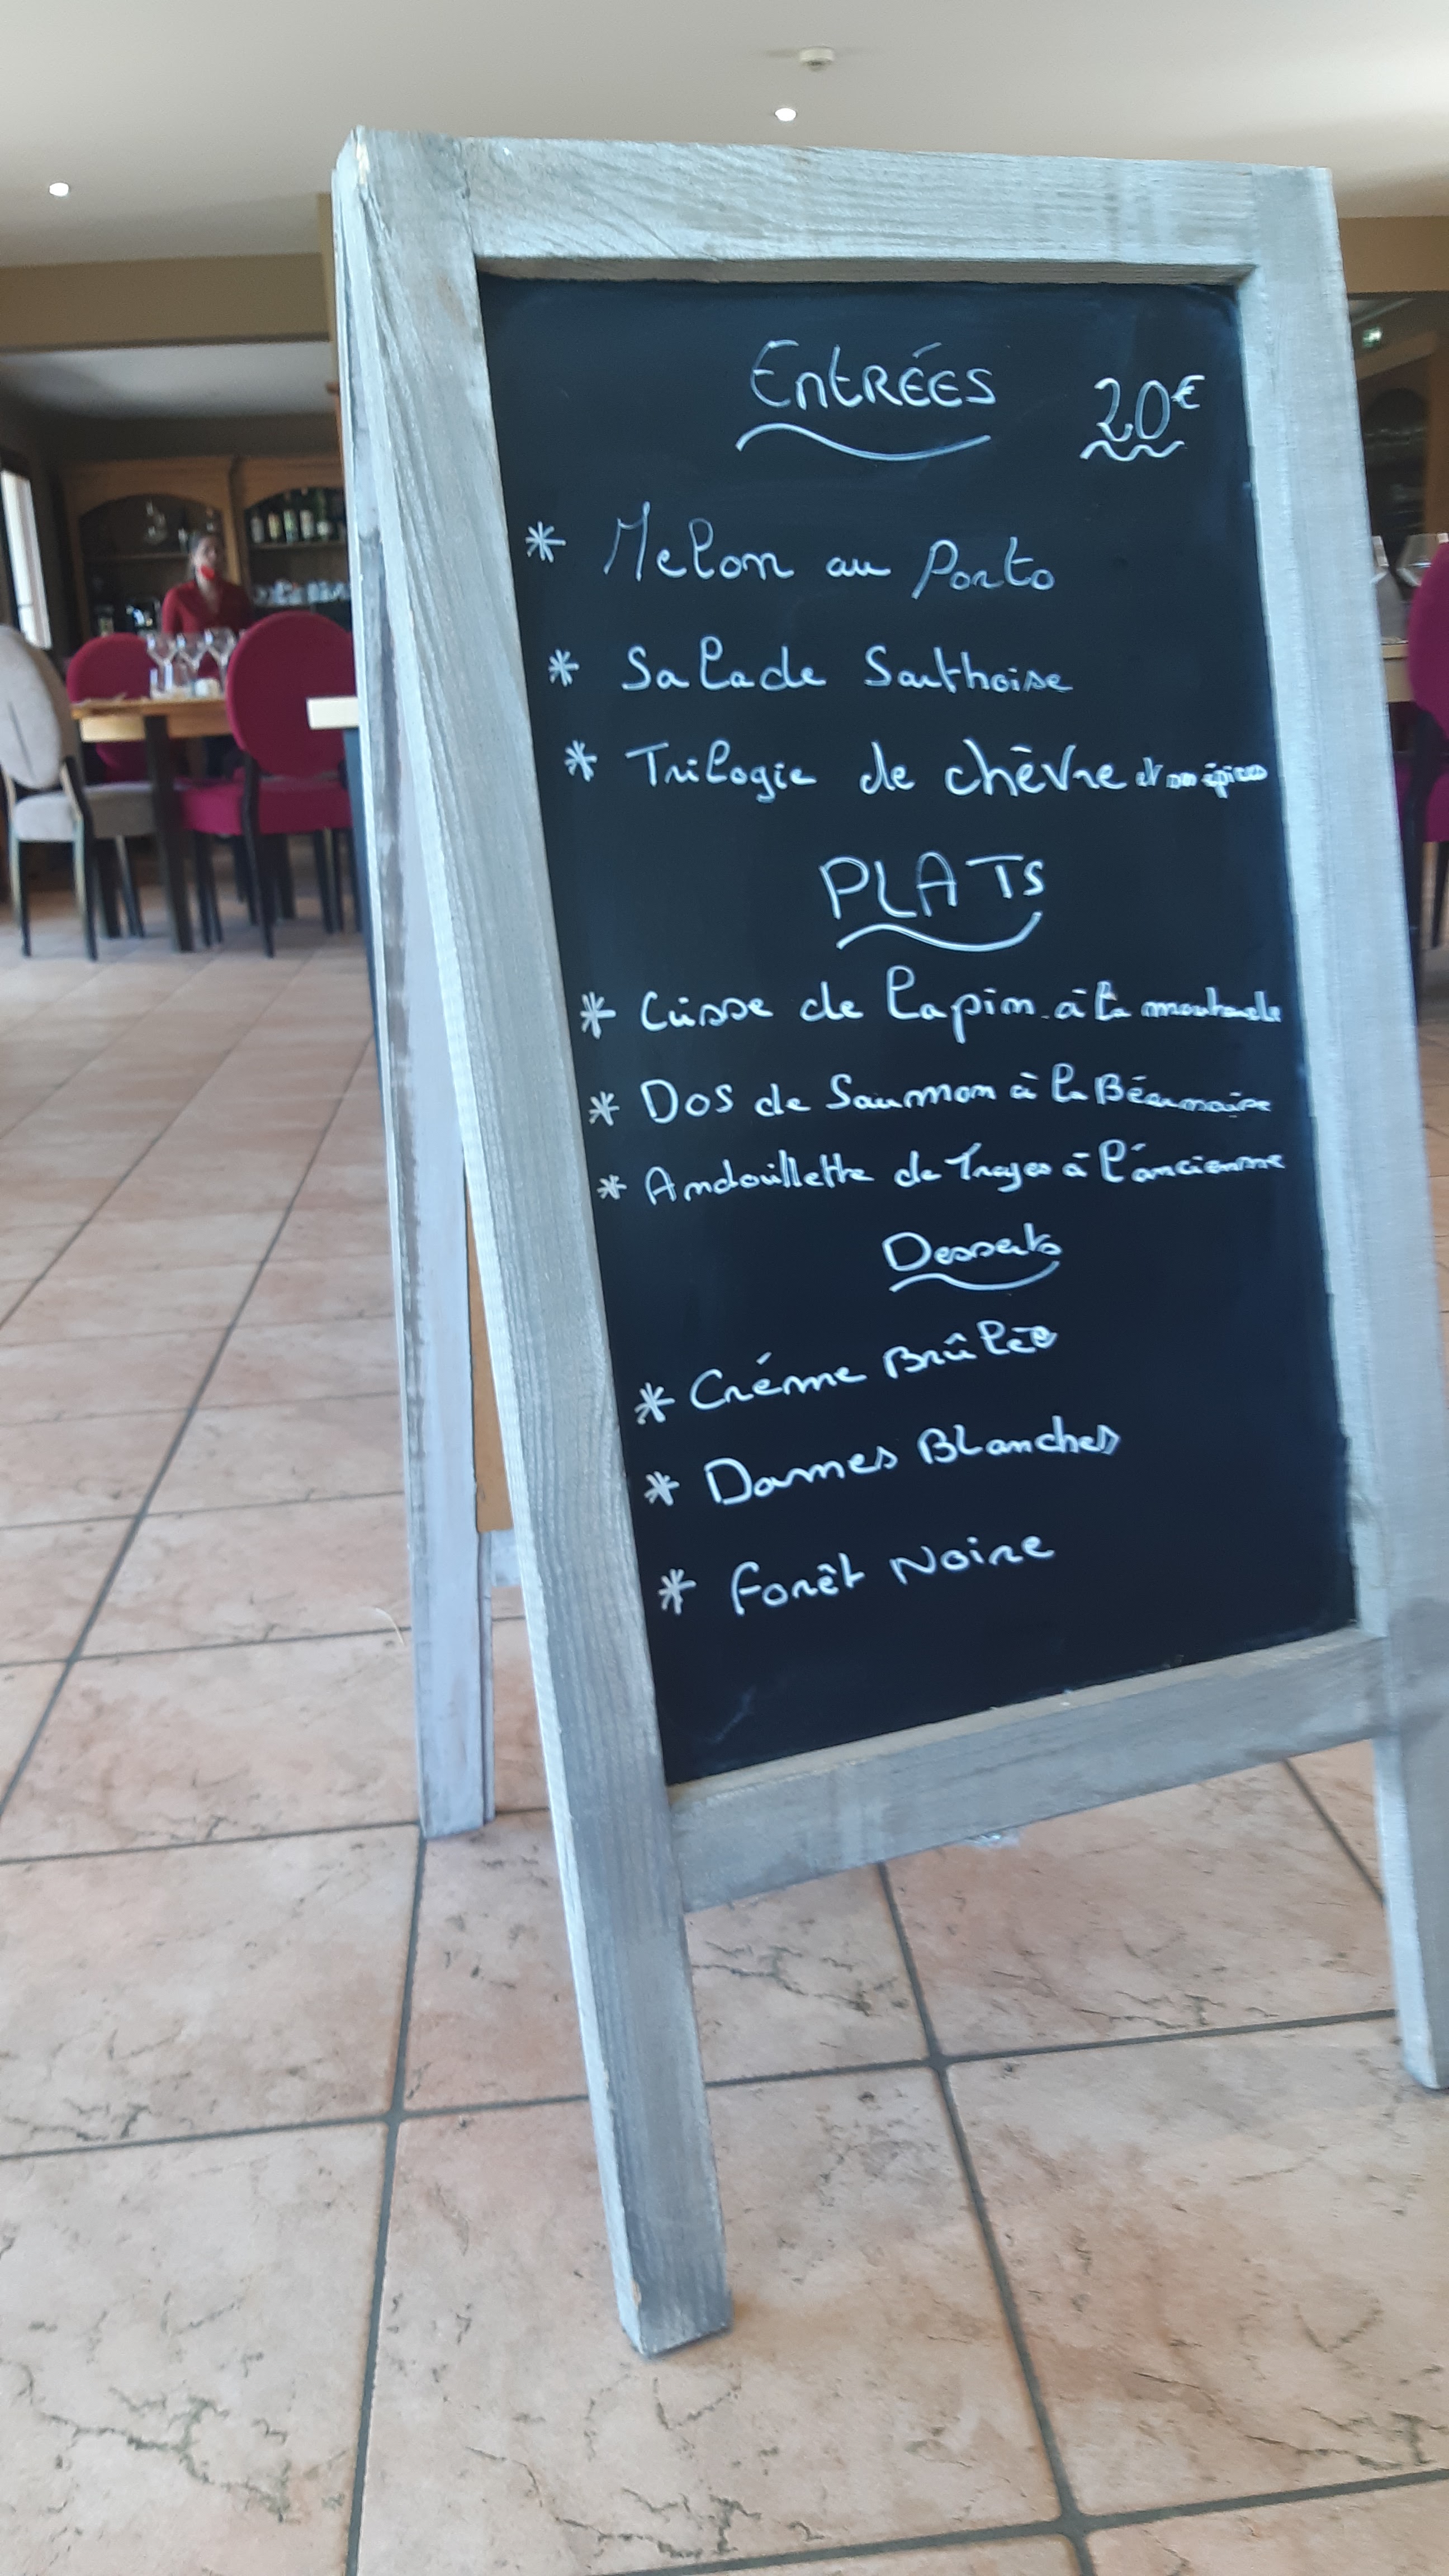 Entrées 20€
* Melon au Porto
* Salade Sarthoise
* Trilogie de chèvre et son épices
PLATS
* Cuisse de lapin à la moutarde
* Dos de Saumon à la Béarnaise
* Andouillette de Troyes à l'ancienne
Desserts
* Créme Brûlée
* Dames Blanches
* Forêt Noire